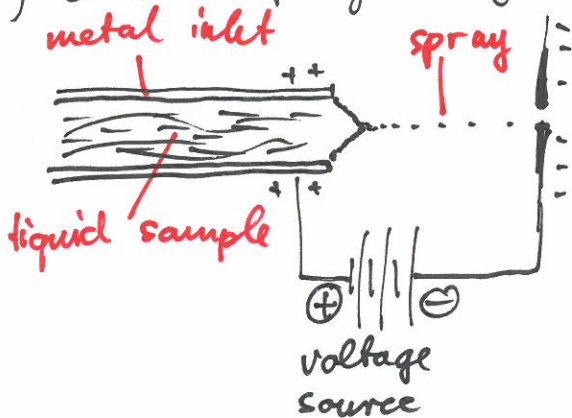 metal inlet
spray
+ +
liquid sample
+ +
+
−
voltage
source